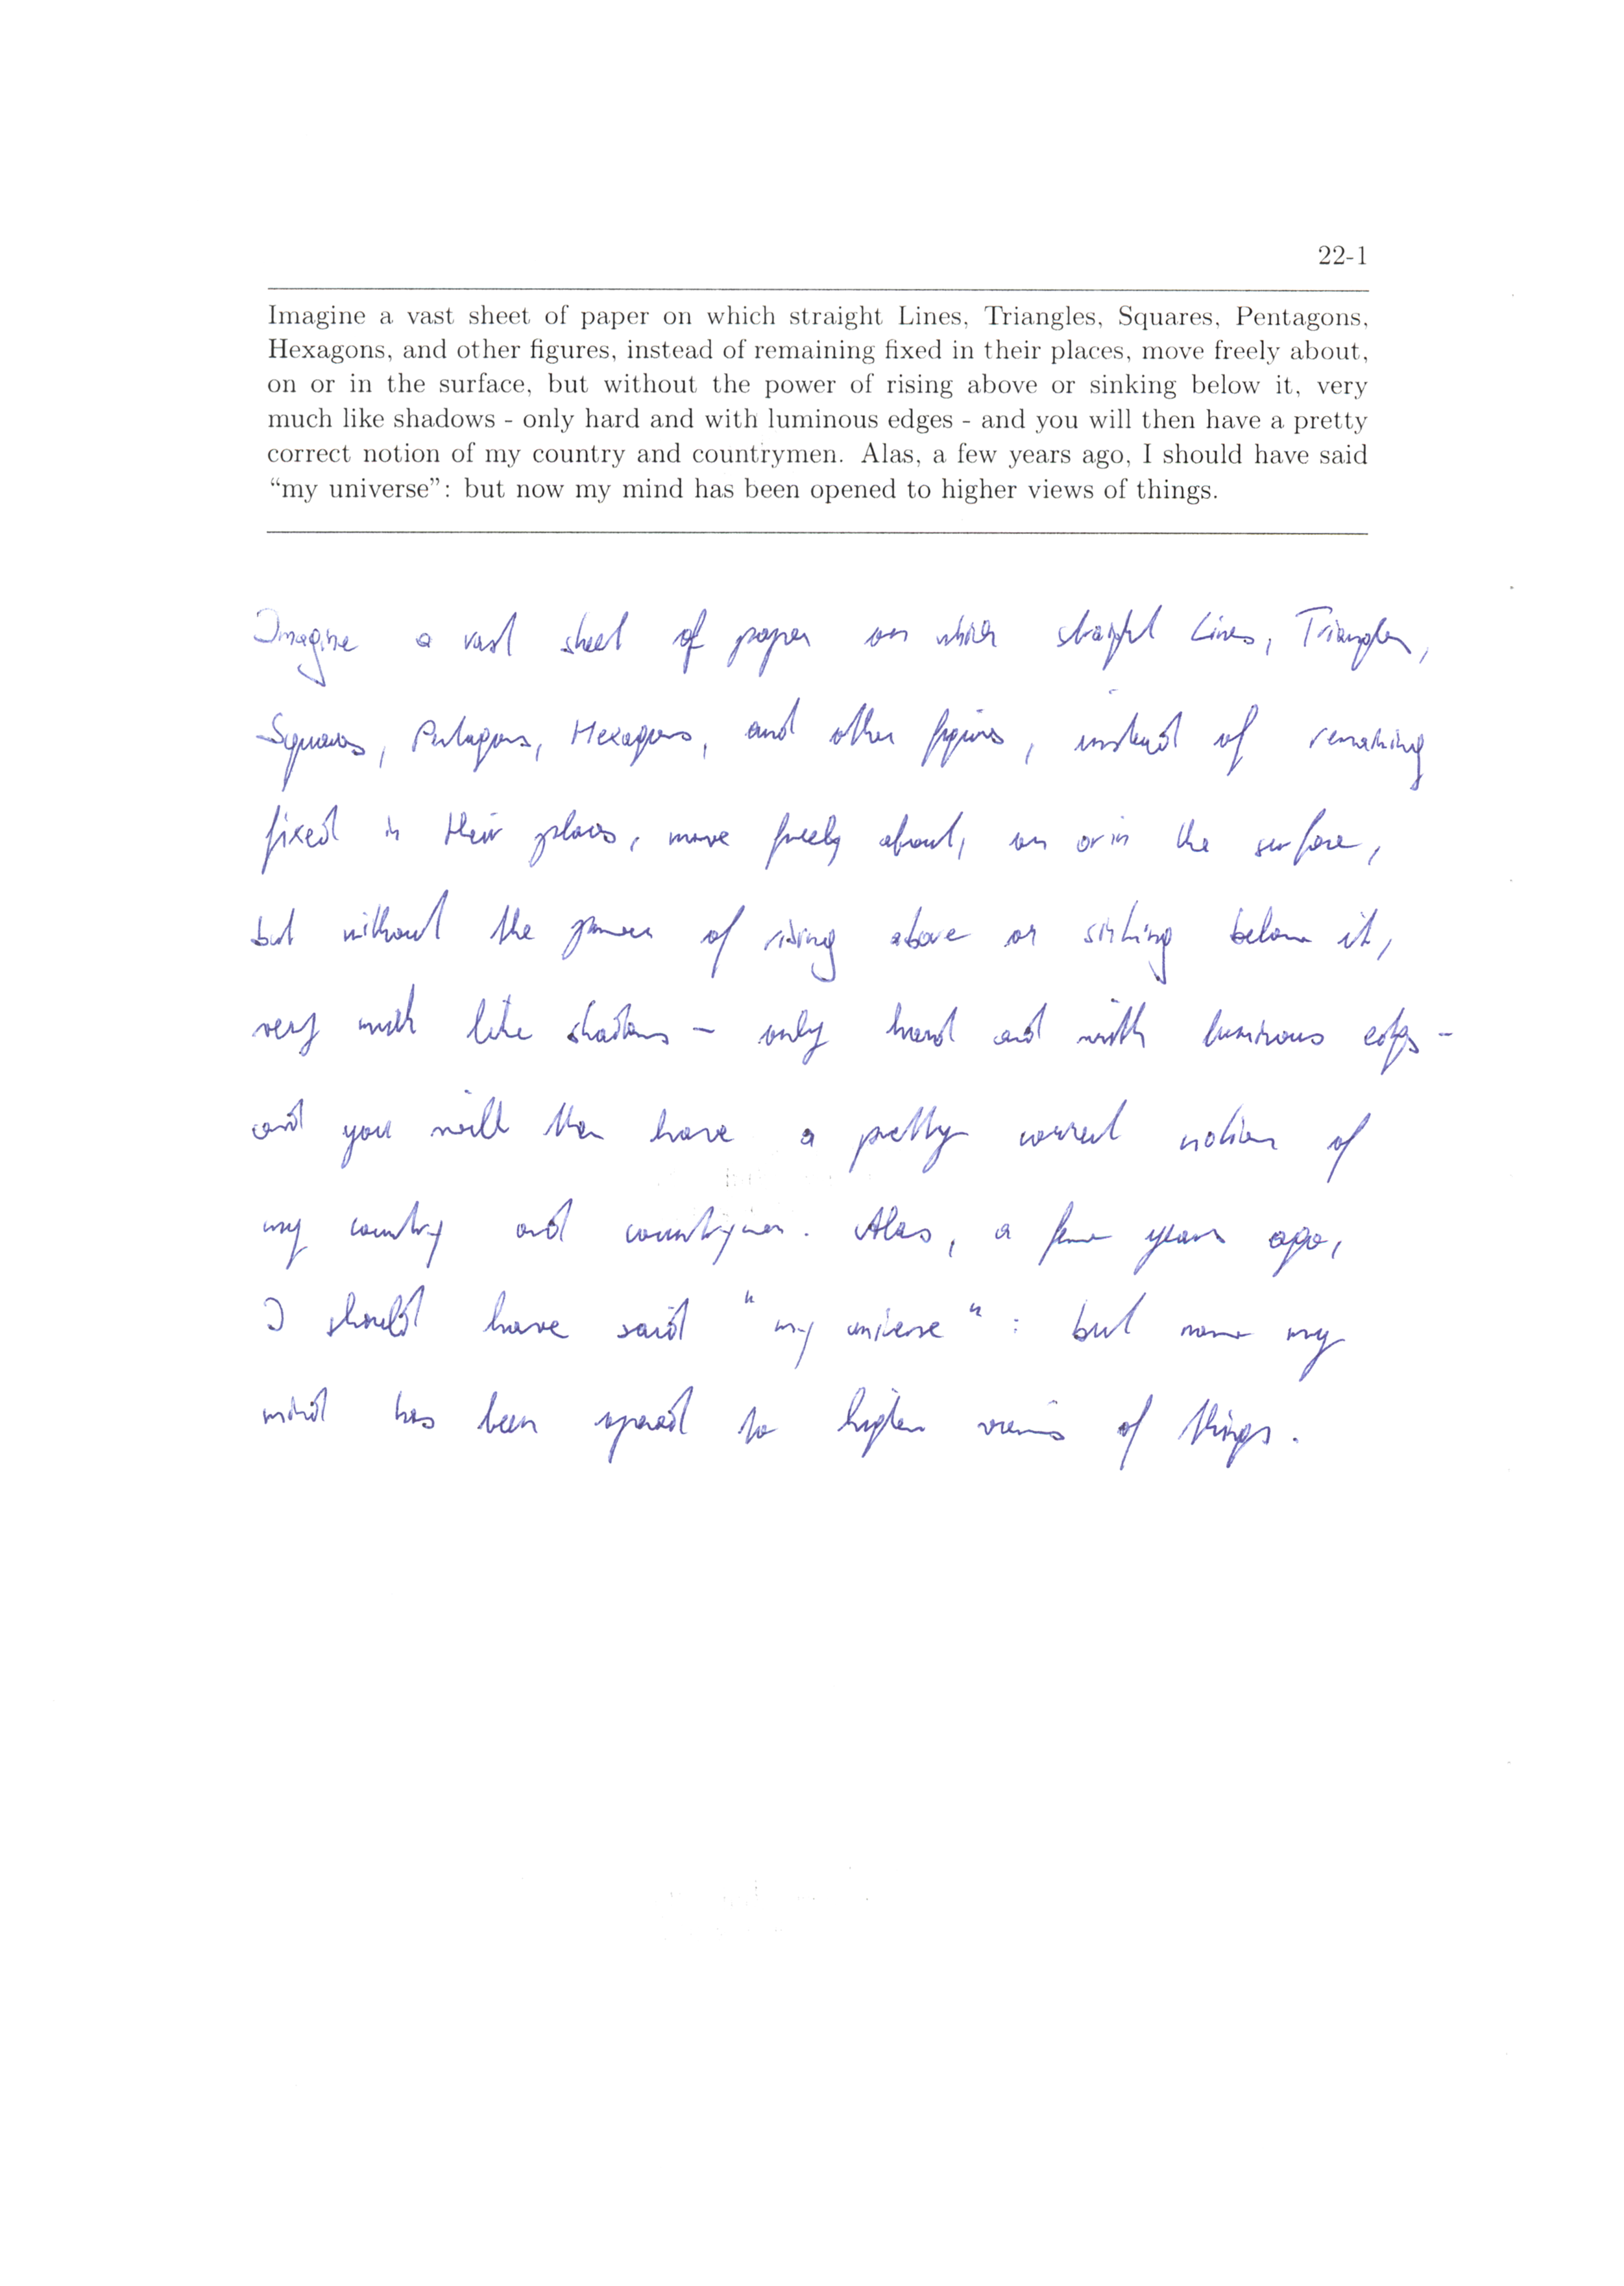 22-1
Imagine a vast sheet of paper on which straight Lines, Triangles, Squares, Pentagons,
Hexagons, and other figures, instead of remaining fixed in their places, move freely about,
on or in the surface, but without the power of rising above or sinking below it, very
much like shadows - only hard and with luminous edges - and you will then have a pretty
correct notion of my country and countrymen. Alas, a few years ago, I should have said
“my universe”: but now my mind has been opened to higher views of things.
Imagine a vast sheet of paper on which straight Lines, Triangles,
Squares, Pentagons, Hexagons, and other figures, instead of remaining
fixed in their places, move freely about, on or in the surface,
but without the power of rising above or sinking below it,
very much like shadows - only hard and with luminous edges -
and you will then have a pretty correct notion of
my country and countrymen. Alas, a few years ago,
I should have said "my universe": but now my
mind has been opened to higher views of things.